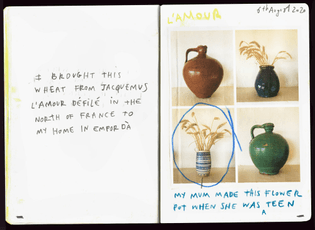 I BROUGHT THIS
WHEAT FROM JACQUEMUS
L'AMOUR DÉFILÉ IN THE
NORTH OF FRANCE TO
MY HOME IN EMPORDÀ
L'AMOUR
6th August 2020
MY MUM MADE THIS FLOWER
POT WHEN SHE WAS TEEN
A